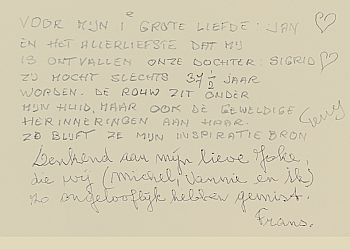 VOOR MIJN 1e GROTE LIEFDE: JAN
EN HET ALLERLIEFSTE DAT MIJ
IS ONTVALLEN ONZE DOCHTER: SIGRID
ZIJ MOCHT SLECHTS 37 1/2 JAAR
WORDEN. DE ROUW ZIT ONDER
MIJN HUID, MAAR OOK DE GEWELDIGE
HERINNERINGEN AAN HAAR.
ZO BLIJFT ZE MIJN INSPIRATIEBRON
Gerry
Denkend aan mijn lieve Joke,
die wij (Michel, Vannie en ik)
zo ongelooflijk hebben gemist.
Frans.